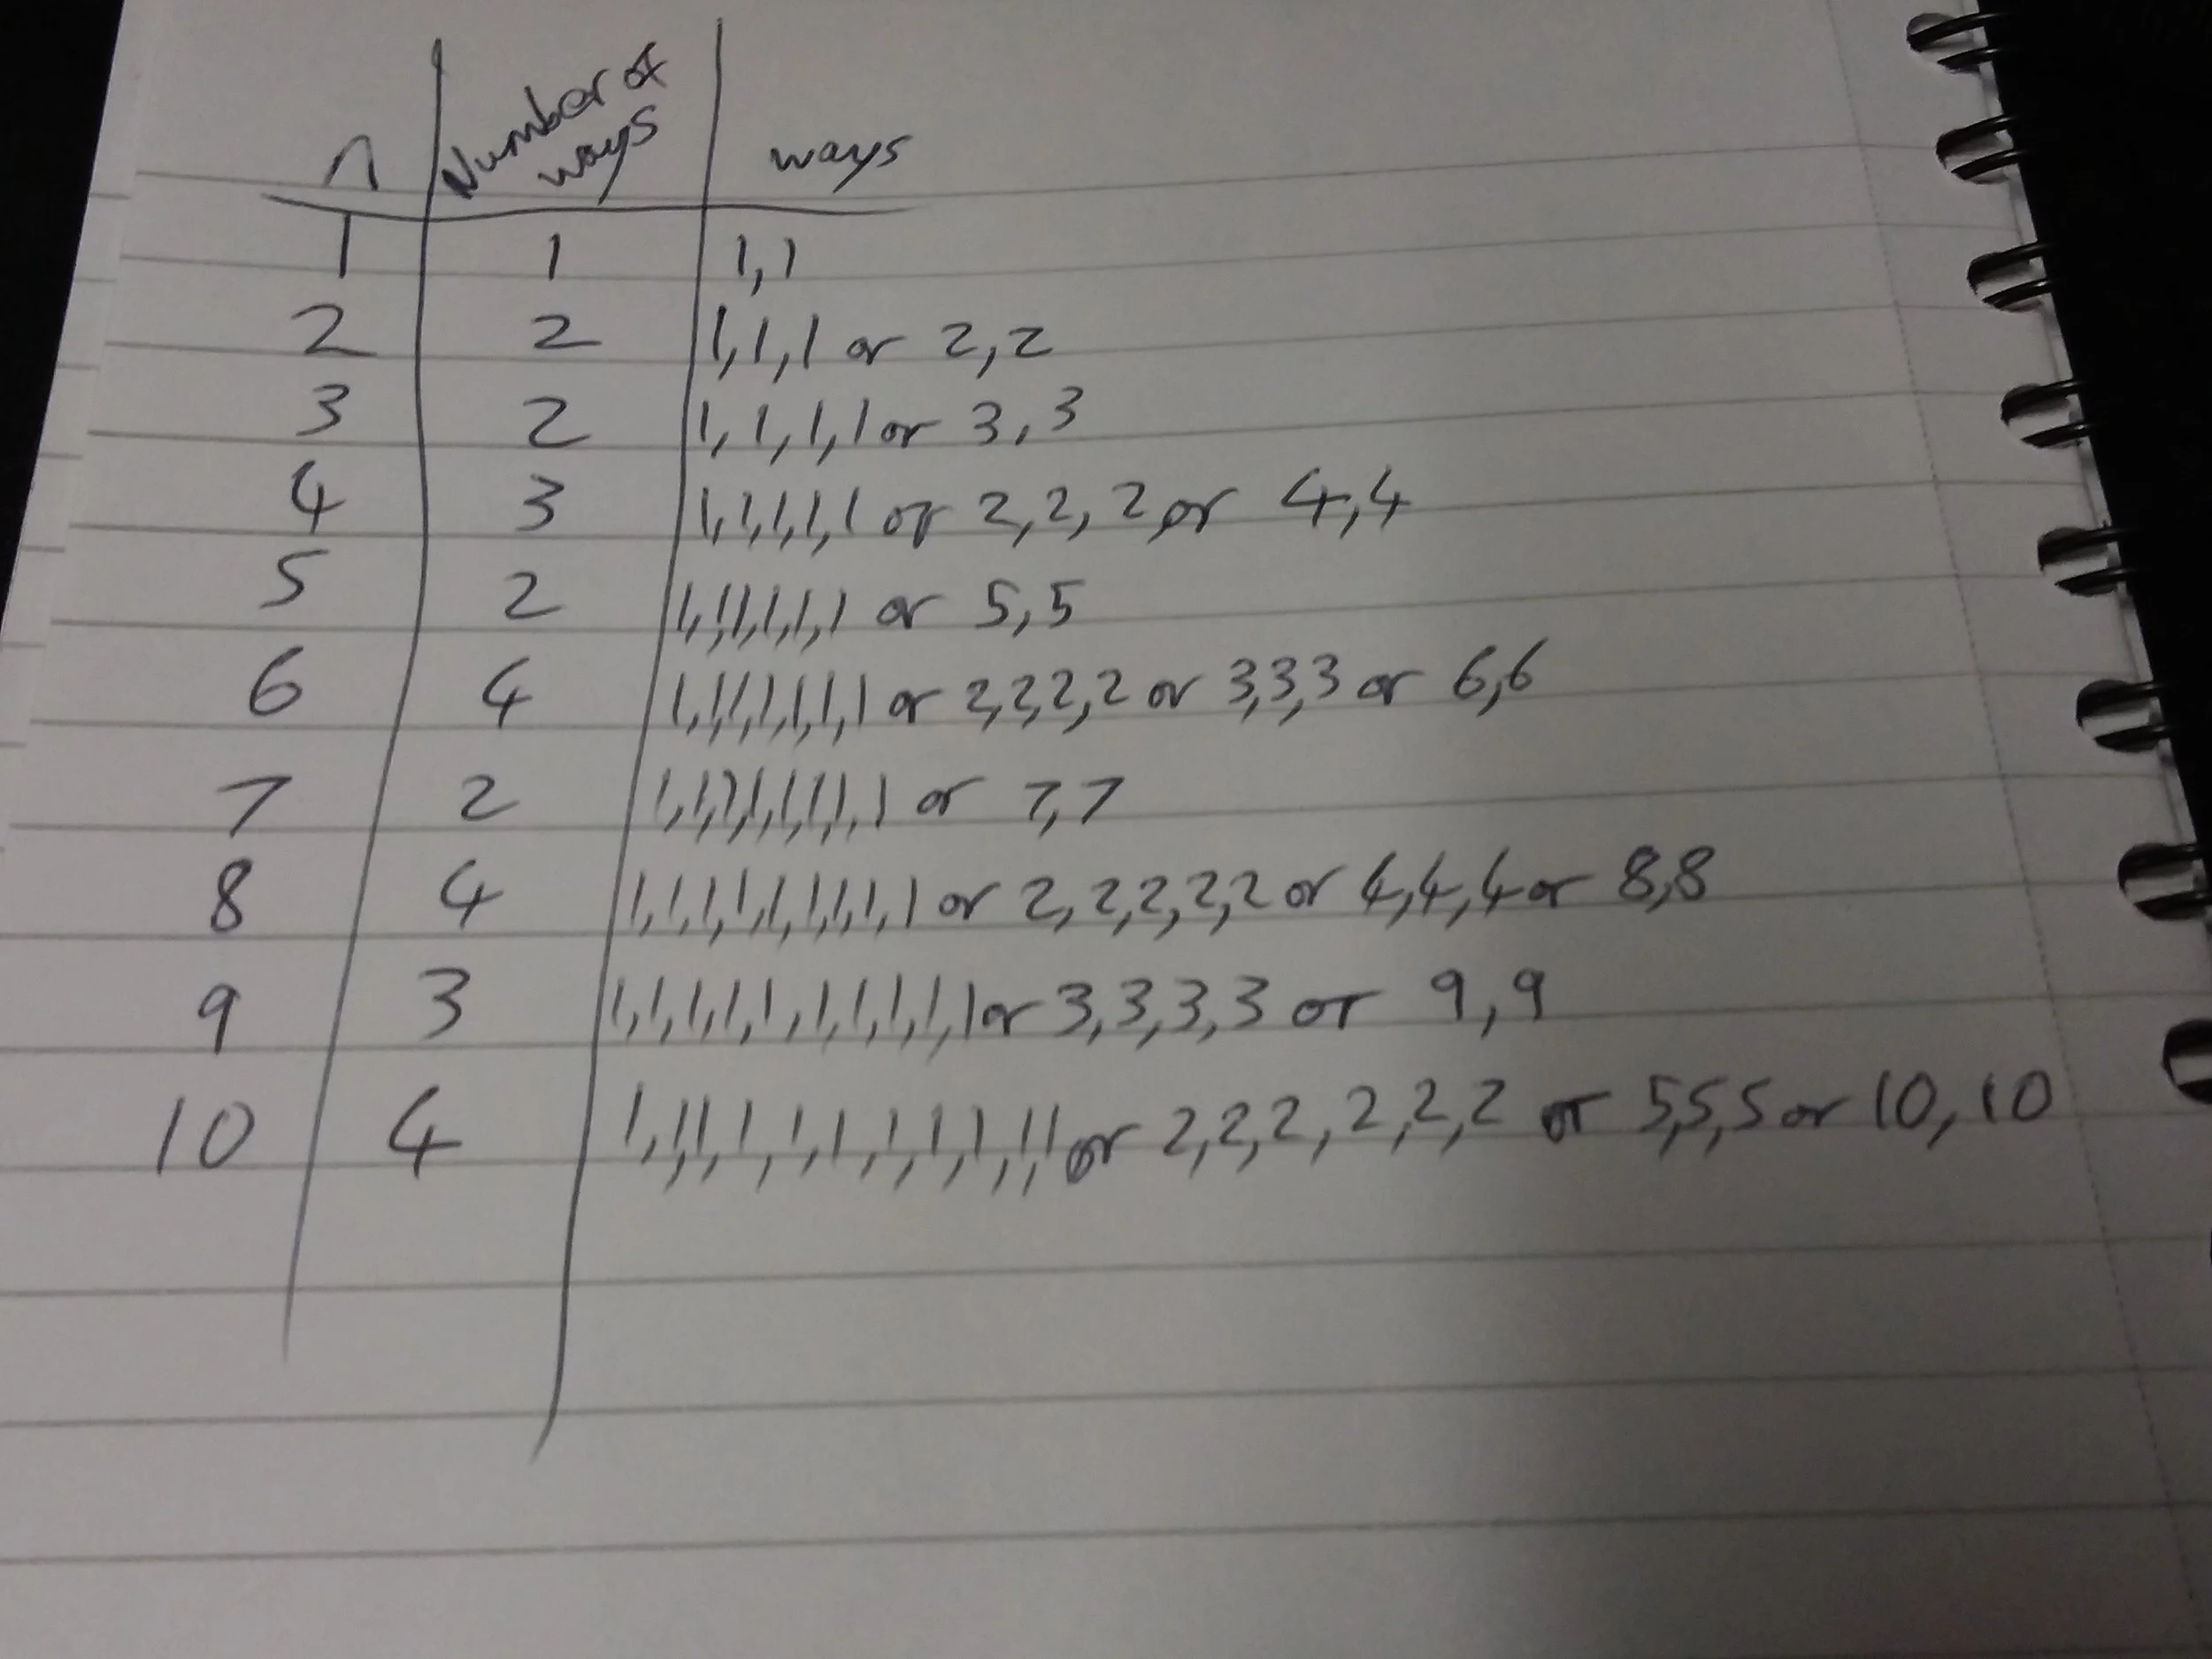 n Number of ways ways
1 1 1,1
2 2 1,1,1 or 2,2
3 2 1,1,1,1 or 3,3
4 3 1,1,1,1,1 or 2,2,2, or 4,4
5 2 1,1,1,1,1,1 or 5,5
6 4 1,1,1,1,1,1,1 or 2,2,2,2 or 3,3,3 or 6,6
7 2 1,1,1,1,1,1,1,1 or 7,7
8 4 1,1,1,1,1,1,1,1,1 or 2,2,2,2,2 or 4,4,4 or 8,8
9 3 1,1,1,1,1,1,1,1,1,1 or 3,3,3,3 or 9,9
10 4 1,1,1,1,1,1,1,1,1,1,1 or 2,2,2,2,2,2 or 5,5,5 or 10,10